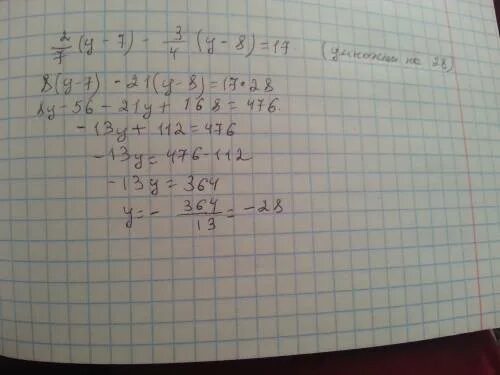 2/7 (y - 7) - 3/4 (y - 8) = 17 (умножим на 28)
8(y - 7) - 21(y - 8) = 17 • 28
8y - 56 - 21y + 168 = 476
- 13y + 112 = 476
- 13y = 476 - 112
- 13y = 364
y = - 364/13 = - 28